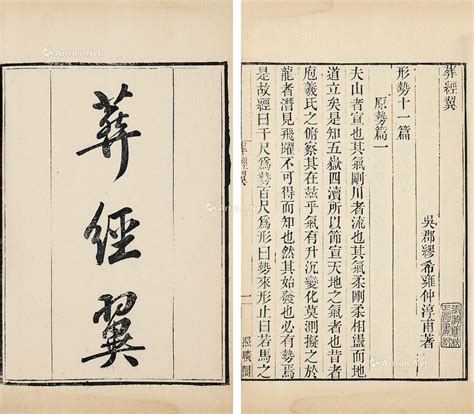 葬經翼
葬經翼
吳郡繆希雍仲淳甫著
形勢十一篇
原勢篇一
夫山者宣也其氣剛川者流也其氣柔剛柔相盪而地
道立矣是知五嶽四瀆所以節宣天地之氣者也昔者
庖羲氏之俯察其在兹乎氣有升沉變化莫測擬之於
龍者潛見飛躍不可得而知也然其始發也必有勢焉
是故經曰千尺爲勢百尺爲形曰勢來形止曰若馬之
葬經翼
一
照曠閣
Artron.Net
Artron.Net